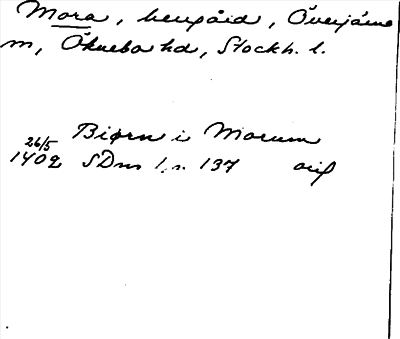 Mora, herrgård, Överjärna
sn, Öknebo hd, Stockh. l.
Biørn i Morum
26/5
1402 SDns 1, n. 137 orig